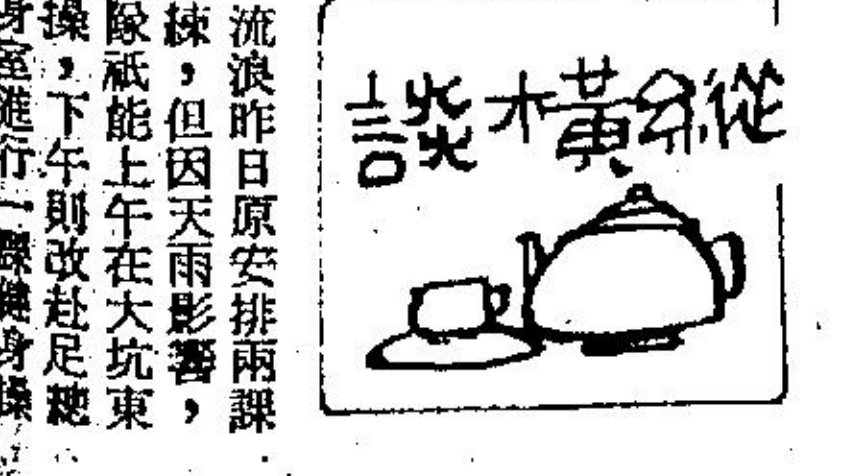 縱橫談
流浪昨日原安排兩課
練，但因天雨影響，
隊祇能上午在大坑東
操，下午則改赴足總
身室進行一課健身操